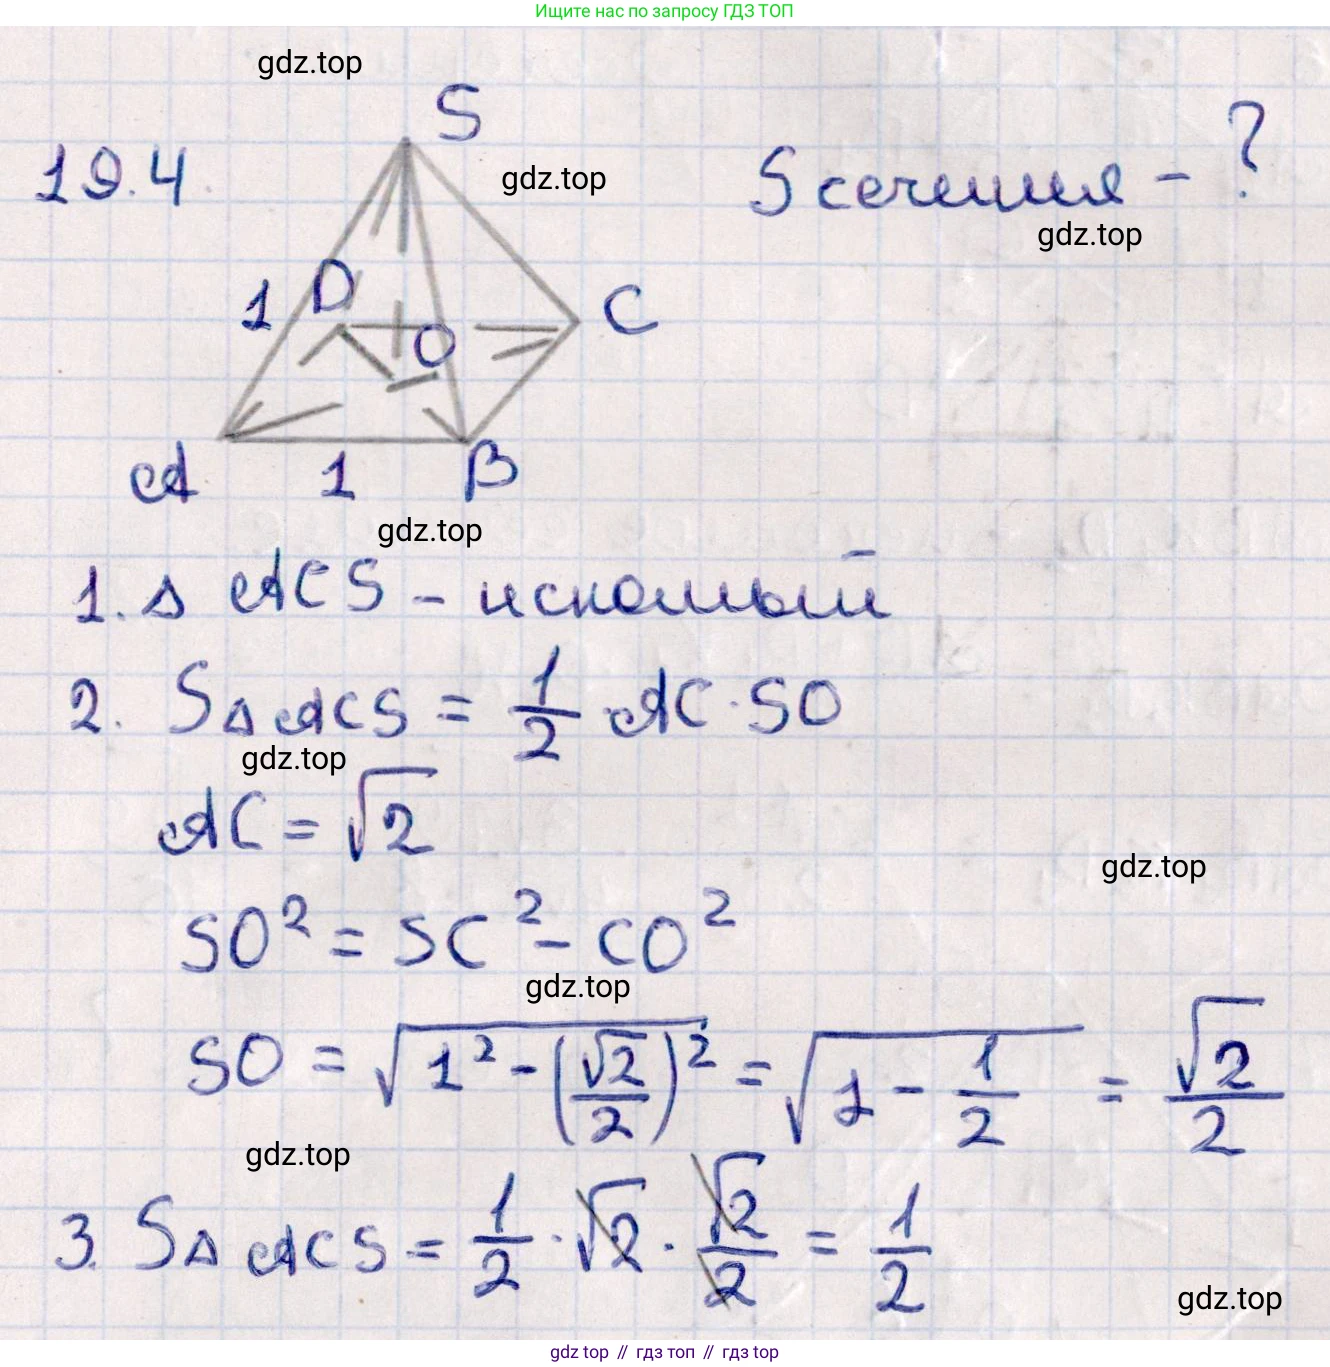 Ищите нас по запросу ГДЗ ТОП
gdz.top
S
19.4
gdz.top
S сечения - ?
gdz.top
1 D C
O
A 1 B
gdz.top
1. Δ ACS - искомый
2. S Δ ACS = 1/2 · AC · SO
gdz.top
AC = √2
gdz.top
SO² = SC² - CO²
gdz.top
SO = √(1² - (√2/2)²) = √(1 - 1/2) = √2/2
gdz.top
3. S Δ ACS = 1/2 · √2 · √2/2 = 1/2
gdz.top
gdz top // гдз топ // гдз top